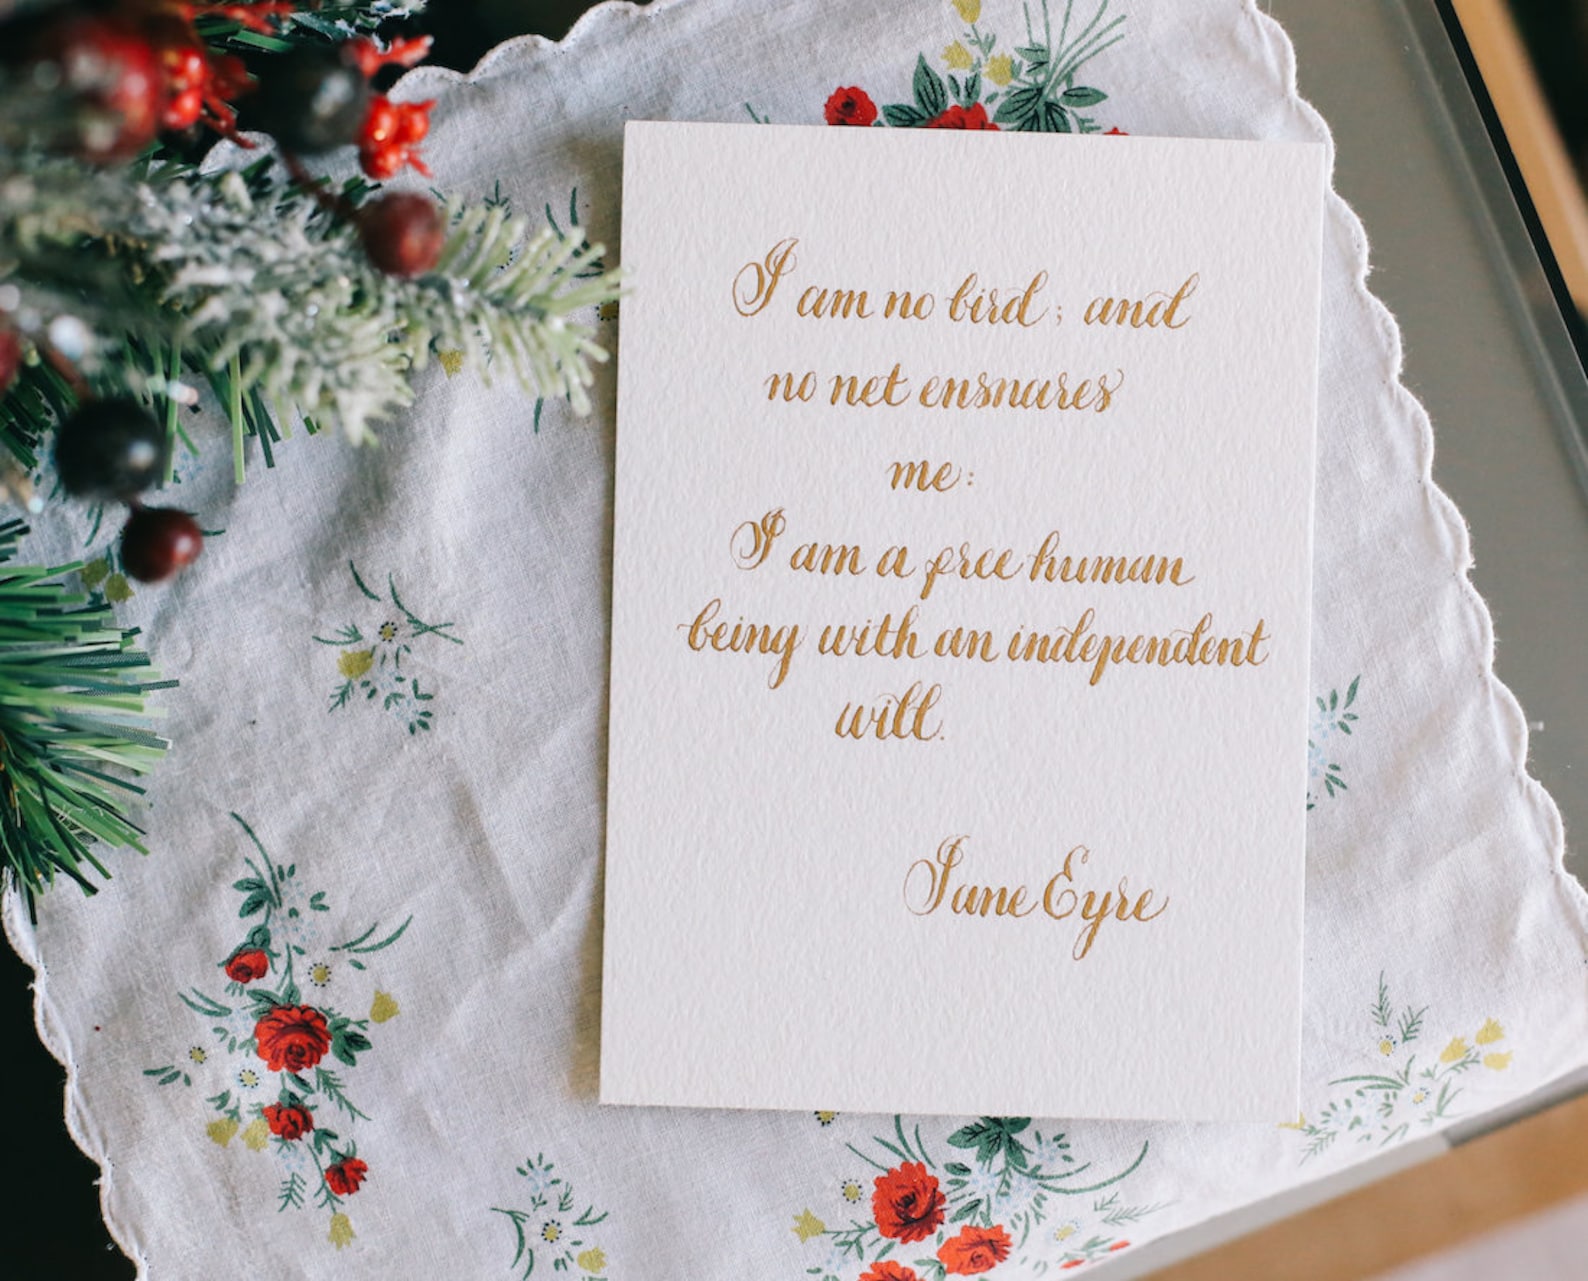 I am no bird; and
no net ensnares
me:
I am a free human
being with an independent
will.
Jane Eyre